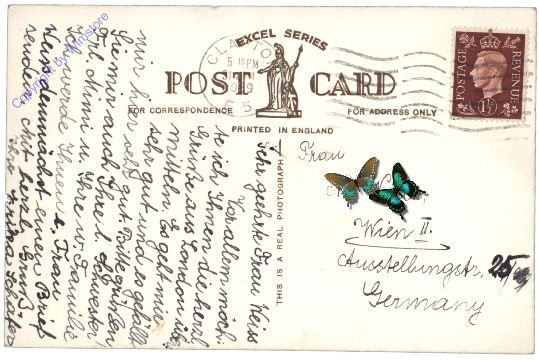 EXCEL SERIES
POST CARD
FOR CORRESPONDENCE
FOR ADDRESS ONLY
PRINTED IN ENGLAND
THIS IS A REAL PHOTOGRAPH
5 15 PM
POSTAGE
REVENUE
1½
Sehr geehrte Frau Weiss
Vor allem möch-
te ich Ihnen die herzl.
Grüße aus London über-
mitteln. Es geht mir
sehr gut und es gefällt
mir hier sehr gut. Bitte grüßen
Sie mir auch Ihre l. Schwester
Frl. Mimi u. Ihre w. Familie
Ich werde Ihnen l. Frau
Weiss demnächst einen Brief
senden. Mit herzl. Gruß
Frau
Wien II.
Ausstellungsstr. 25
Germany